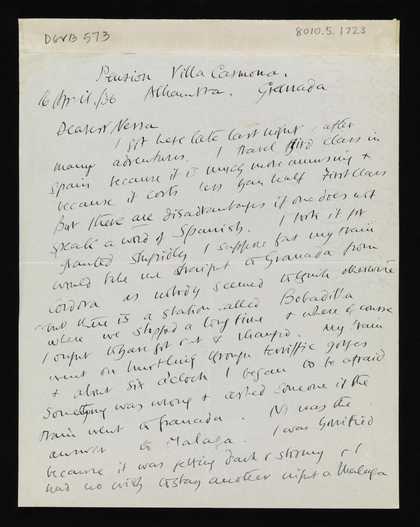 D6VB 573
8010.5.1723
Pension Villa Carmona.
16 April./36 Alhambra. Granada
Dearest Nessa
I got here late last night, after
many adventures. I travel third class in
Spain because it is much more amusing &
because it costs less than half first class
But there are disadvantages if one does not
speak a word of Spanish. I took it for
granted stupidly I suppose that my train
would take me straight to Granada from
Cordova as nobody seemed to think otherwise
but there is a station called Bobadilla
where we stopped a long time & where of course
I ought to have got out & changed. My train
went on hurtling through terrific gorges
& about six o'clock I began to be afraid
something was wrong & asked someone if the
train went to Granada. No was the
answer to Malaga. I was horrified
because it was getting dark & stormy & I
had no wish to stay another night at Malaga